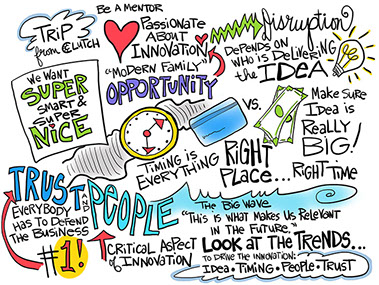 TRiP
from CLUTCH
BE A MENTOR
PASSIONATE
ABOUT
INNOVATION
"MODERN FAMILY"
OPPORTUNITY
DiSRUPTiON
DEPENDS ON
WHO IS DELIVERING
the IDEA
WE WANT
SUPER
SMART &
SUPER
NICE
VS.
MAKE SURE
IDEA IS
REALLY
BIG!
TIMING IS
EVERYTHING
RIGHT
PLACE...
RIGHT TIME
TRUST AND
PEOPLE
EVERYBODY
HAS TO DEFEND
THE BUSINESS
#1!
CRITICAL ASPECT
OF INNOVATION
THE BIG WAVE
"THIS IS WHAT MAKES US RELEVANT
IN THE FUTURE."
LOOK AT THE TRENDS...
TO DRIVE THE INNOVATION:
IDEA · TIMING · PEOPLE · TRUST